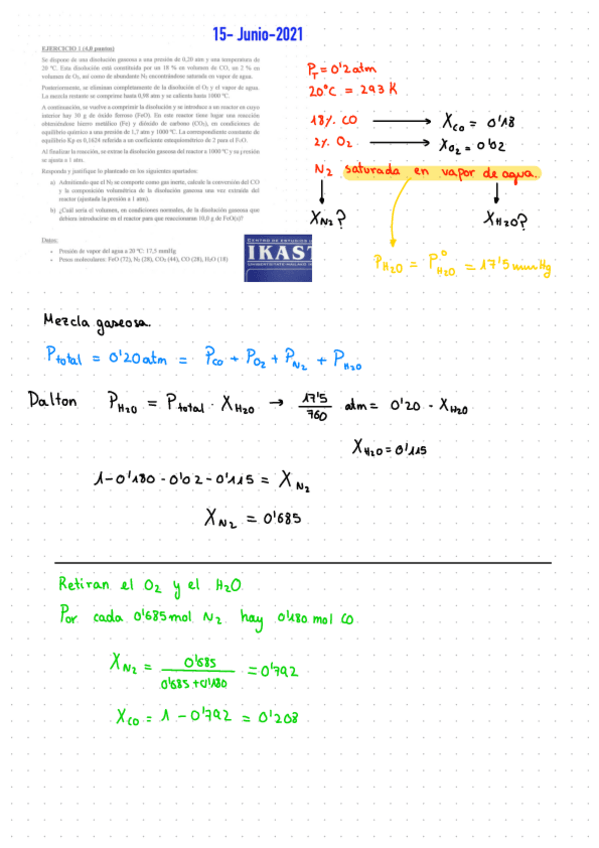 15- Junio-2021
EJERCICIO 1 (4,0 puntos)
Se dispone de una disolución gaseosa a una presión de 0,20 atm y una temperatura de
20 ºC. Esta disolución está constituida por un 18 % en volumen de CO, un 2 % en
volumen de O₂, así como de abundante N₂ encontrándose saturada en vapor de agua.
Posteriormente, se eliminan completamente de la disolución el O₂ y el vapor de agua.
La mezcla restante se comprime hasta 0,98 atm y se calienta hasta 1000 ºC.
A continuación, se vuelve a comprimir la disolución y se introduce a un reactor en cuyo
interior hay 30 g de óxido ferroso (FeO). En este reactor tiene lugar una reacción
obteniéndose hierro metálico (Fe) y dióxido de carbono (CO₂), en condiciones de
equilibrio químico a una presión de 1,7 atm y 1000 ºC. La correspondiente constante de
equilibrio Kp es 0,1624 referida a un coeficiente estequiométrico de 2 para el FeO.
Al finalizar la reacción, se extrae la disolución gaseosa del reactor a 1000 ºC y su presión
se ajusta a 1 atm.
Responda y justifique lo planteado en los siguientes apartados:
a) Admitiendo que el N₂ se comporte como gas inerte, calcule la conversión del CO
y la composición volumétrica de la disolución gaseosa una vez extraída del
reactor (ajustada la presión a 1 atm).
b) ¿Cuál sería el volumen, en condiciones normales, de la disolución gaseosa que
debiera introducirse en el reactor para que reaccionaran 10,0 g de FeO(s)?
Datos:
• Presión de vapor del agua a 20 ºC: 17,5 mmHg
• Pesos moleculares: FeO (72), N₂ (28), CO₂ (44), CO (28), H₂O (18)
CENTRO DE ESTUDIOS
IKAS
P_T = 0'2 atm
20°C = 293 K
18% CO → X_CO = 0'18
2% O₂ → X_O₂ = 0'02
N₂ saturada en vapor de agua.
X_N₂? X_H₂O?
P_H₂O = P°_H₂O = 17'5 mmHg
Mezcla gaseosa.
P_total = 0'20 atm = P_CO + P_O₂ + P_N₂ + P_H₂O
Dalton P_H₂O = P_total · X_H₂O → 17'5/760 atm = 0'20 · X_H₂O
X_H₂O = 0'115
1-0'180 - 0'02 - 0'115 = X_N₂
X_N₂ = 0'685
Retiran el O₂ y el H₂O
Por cada 0'685 mol N₂ hay 0'180 mol CO
X_N₂ = 0'685/0'685+0'180 = 0'792
X_CO = 1 - 0'792 = 0'208